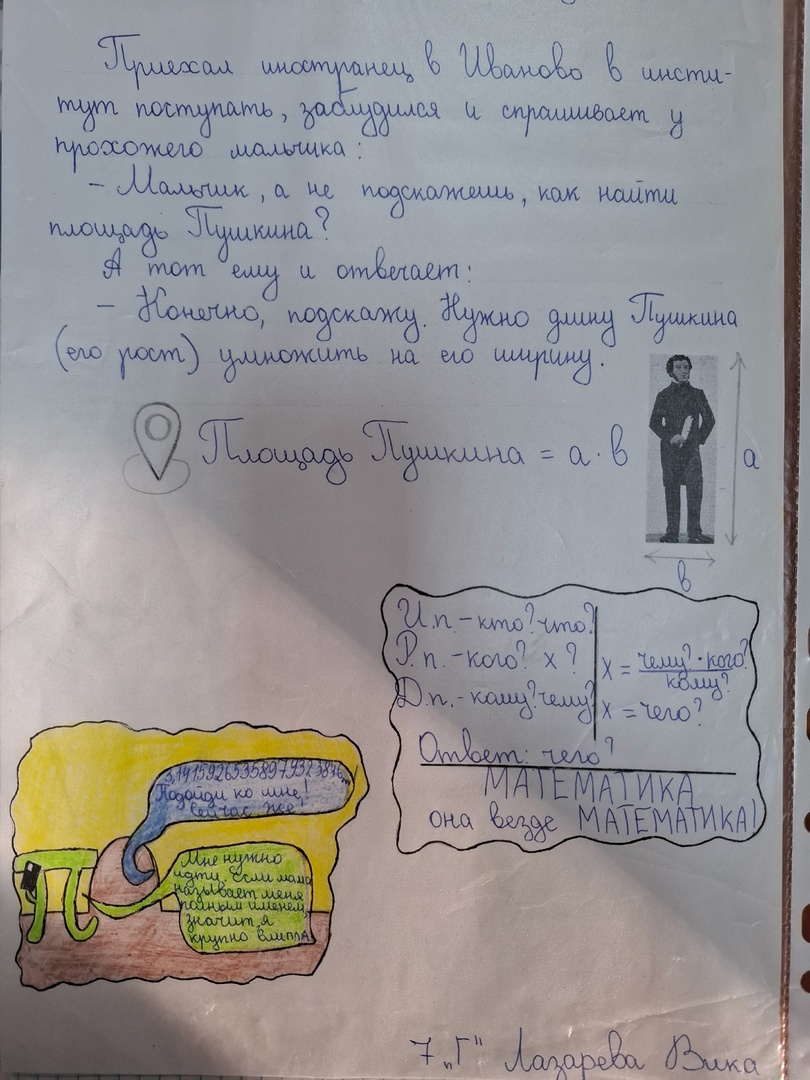 Приехал иностранец в Иваново в инсти-
тут поступать, заблудился и спрашивает у
прохожего мальчика:
- Мальчик, а не подскажешь, как найти
площадь Пушкина?
А тот ему и отвечает:
- Конечно, подскажу. Нужно длину Пушкина
(его рост) умножить на его ширину.
Площадь Пушкина = а · в
а
в
И.п. - кто? что?
Р.п. - кого? х?
Д.п. - кому? чему?
х = чему? · кого? / кому?
х = чего?
Ответ: чего?
МАТЕМАТИКА
она везде МАТЕМАТИКА!
3,14159265358979323846...
Подойди ко мне!
Сейчас же
Мне нужно
идти. Если мама
называет меня
полным именем,
значит я
крупно влипла
7 „Г" Лазарева Вика